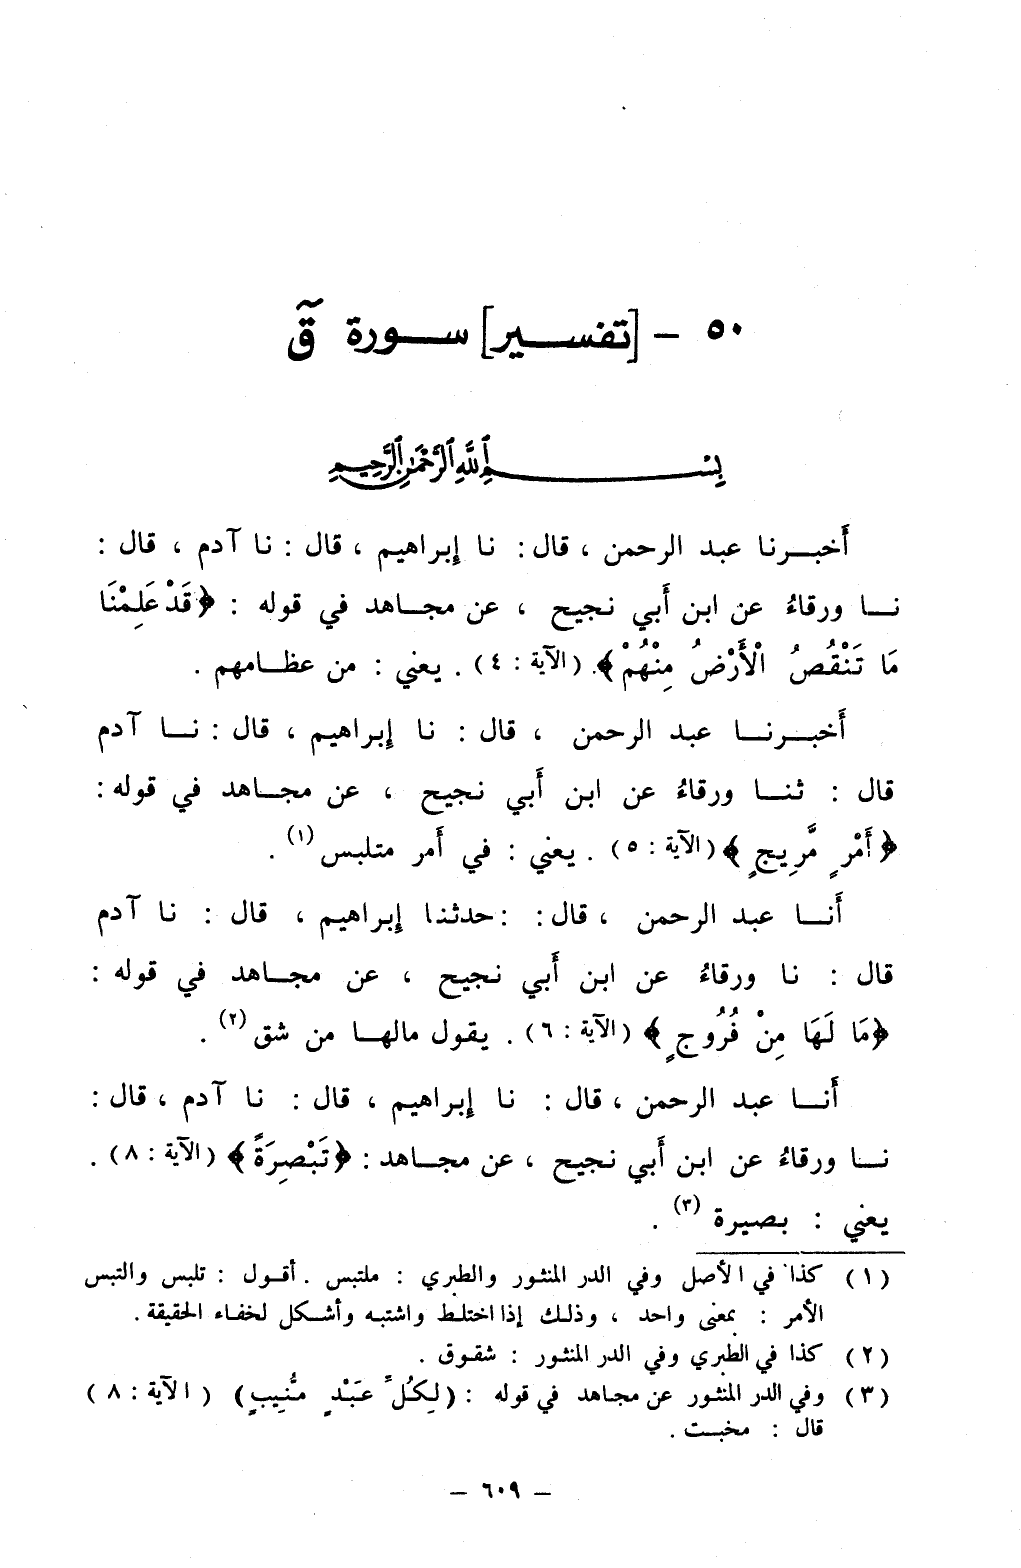 ٥٠ – [تفسير] سورة قٓ
بسم الله الرحمن الرحيم
أخبرنا عبد الرحمن ، قال : نا إبراهيم ، قال : نا آدم ، قال :
نا ورقاءُ عن ابن أَبي نجيح ، عن مجاهد في قوله : ﴿ قَدْ عَلِمْنَا
مَا تَنْقُصُ الْأَرْضُ مِنْهُمْ ﴾. (الآية : ٤) . يعني : من عظامهم .
أَخبرنا عبد الرحمن ، قال : نا إبراهيم ، قال : نا آدم
قال : ثنا ورقاءُ عن ابن أَبي نجيح ، عن مجاهد في قوله :
﴿ أَمْرٍ مَّرِيجٍ ﴾ (الآية : ٥) . يعني : في أَمر متلبس (١) .
أَنا عبد الرحمن ، قال : : حدثنا إبراهيم ، قال : نا آدم
قال : نا ورقاءُ عن ابن أَبي نجيح ، عن مجاهد في قوله :
﴿ مَا لَهَا مِنْ فُرُوجٍ ﴾ (الآية : ٦) . يقول مالها من شق (٢) .
أَنا عبد الرحمن ، قال : نا إبراهيم ، قال : نا آدم ، قال :
نا ورقاءُ عن ابن أَبي نجيح ، عن مجاهد : ﴿ تَبْصِرَةً ﴾ (الآية : ٨) .
يعني : بصيرة (٣) .
(١) كذا في الأصل وفي الدر المنثور والطبري : ملتبس . أقول : تلبس والتبس
الأمر : بمعنى واحد ، وذلك إذا اختلط واشتبه وأشكل لخفاء الحقيقة .
(٢) كذا في الطبري وفي الدر المنثور : شقوق .
(٣) وفي الدر المنثور عن مجاهد في قوله : (لِكُلِّ عَبْدٍ مُّنِيبٍ) (الآية : ٨)
قال : مخبت .
– ٦٠٩ –